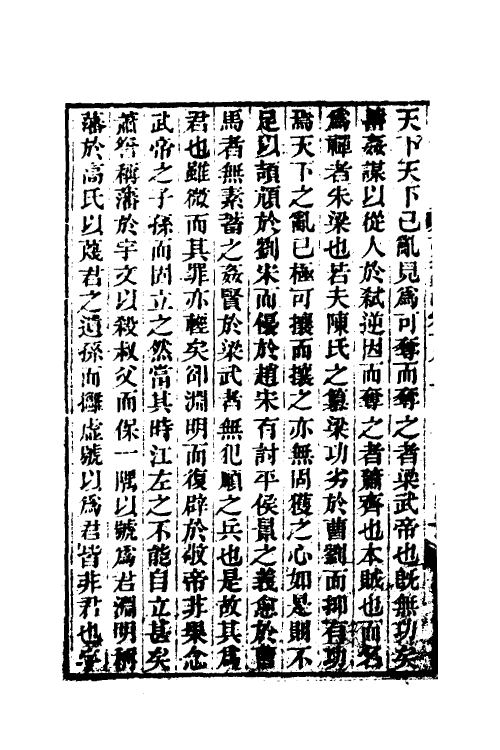 天下天下已亂見為可奪而奪之者梁武帝也旣無功矣
姦謀以從人於弒逆因而奪之者蕭齊也本賊也而名
為禪者朱梁也若夫陳氏之篡梁功劣於曹劉而抑有功
焉天下之亂已極可攘而攘之亦無固獲之心如是則不
足以頡頏於劉宋而優於趙宋有討平侯景之義愈於曹
馬者無素蓄之姦賢於梁武者無犯順之兵也是故其為
君也雖微而其罪亦輕矣卻淵明而復辟於敬帝非果念
武帝之子孫而固立之然當其時江左之不能自立甚矣
蕭詧稱藩於宇文以殺叔父而保一隅以號為君淵明稱
藩於高氏以蔑君之遺孫而擁虛號以為君皆非君也